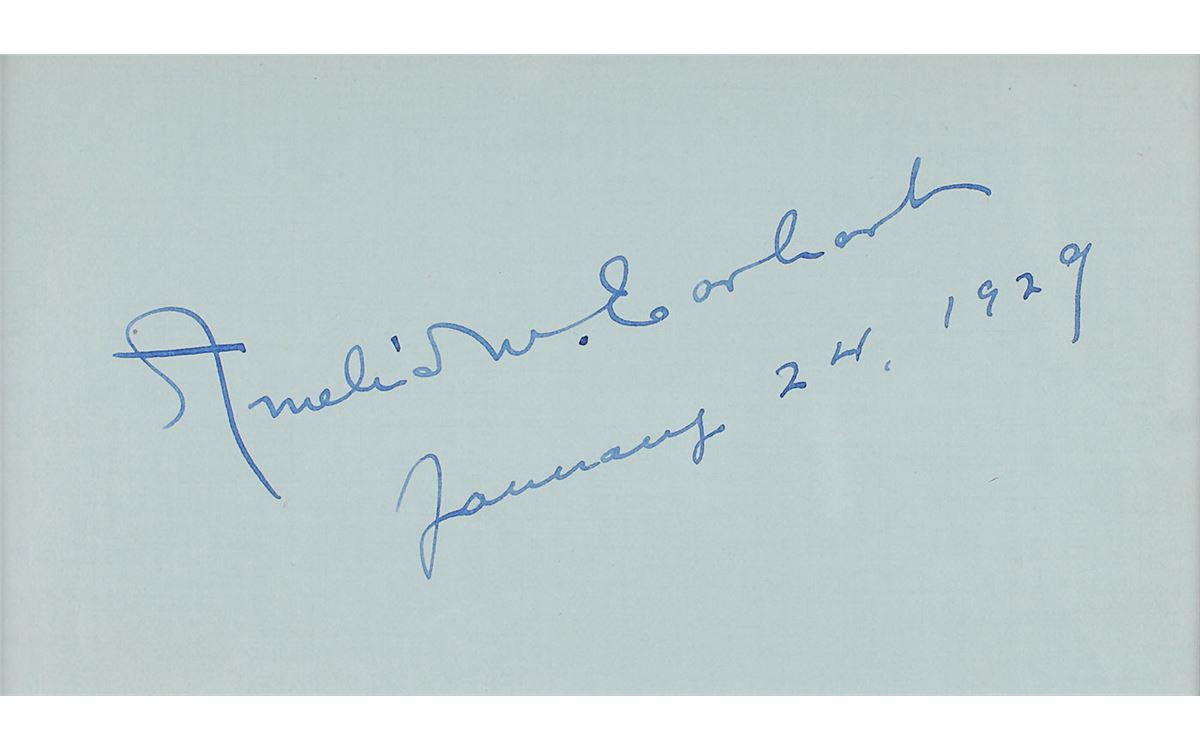 Amelia M. Earhart
January 24, 1929